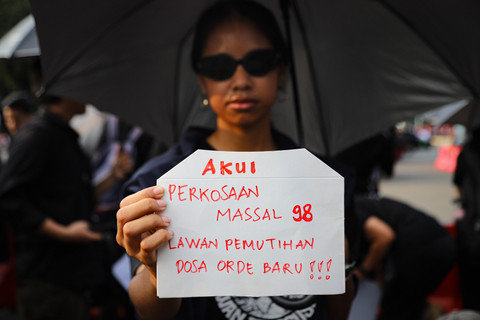 AKUI
PERKOSAAN
MASSAL 98
LAWAN PEMUTIHAN
DOSA ORDE BARU !!!